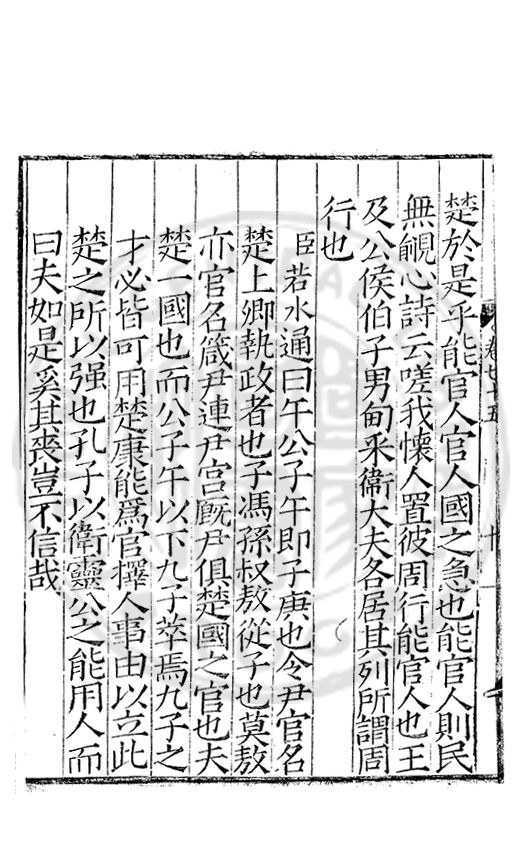 楚於是乎能官人官人國之急也能官人則民
無覦心詩云嗟我懷人置彼周行能官人也王
及公侯伯子男甸采衞大夫各居其列所謂周
行也
臣若水通曰午公子午即子庚也令尹官名
楚上卿執政者也子馮孫叔敖從子也莫敖
亦官名箴尹連尹宫廐尹俱楚國之官也夫
楚一國也而公子午以下九子萃焉九子之
才必皆可用楚康能爲官擇人事由以立此
楚之所以强也孔子以衛靈公之能用人而
曰夫如是奚其喪豈不信哉
卷七十五